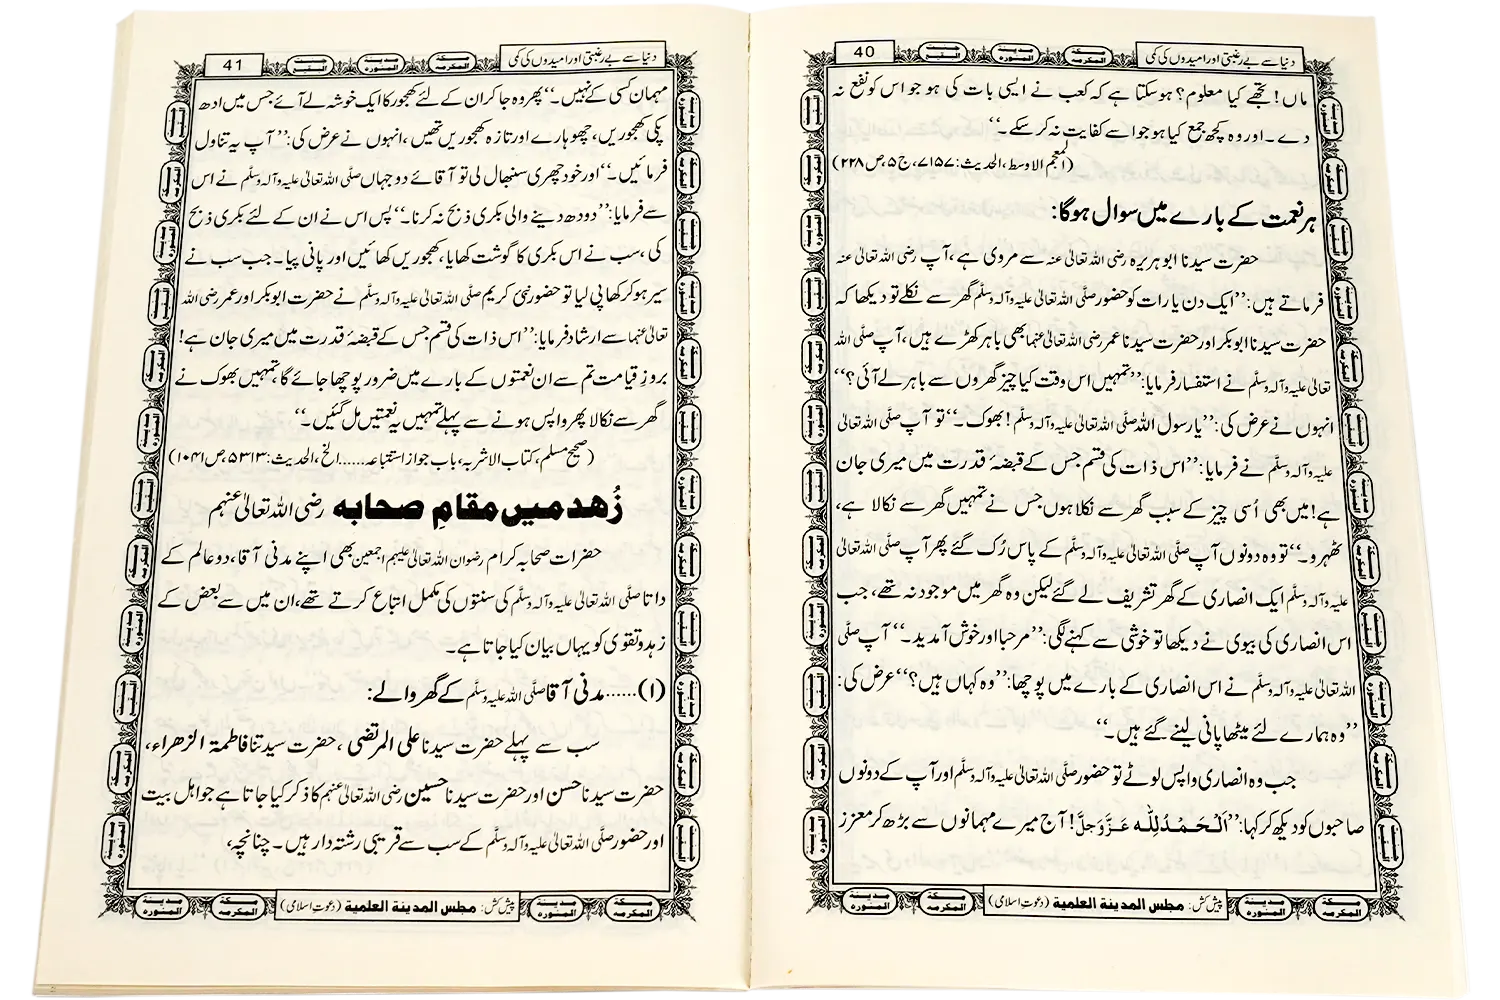 دنیا سے بے رغبتی اور امیدوں کی کمی
مکۃ المکرمہ
مدینۃ المنورہ
جنت البقیع
40
ماں! تجھے کیا معلوم؟ ہوسکتا ہے کہ کعب نے ایسی بات کی ہو جو اس کو نفع نہ
دے۔ اور وہ کچھ جمع کیا ہو جو اسے کفایت نہ کر سکے۔‘‘
(المعجم الاوسط، الحدیث: ۷۱۵۷، ج۵، ص ۲۲۸)
ہر نعمت کے بارے میں سوال ہوگا:
حضرت سیدنا ابو ہریرہ رضی اللہ تعالیٰ عنہ سے مروی ہے، آپ رضی اللہ تعالیٰ عنہ
فرماتے ہیں: ’’ایک دن یا رات کو حضور صلَّی اللہ تعالیٰ علیہ واٰلہٖ وسلَّم گھر سے نکلے تو دیکھا کہ
حضرت سیدنا ابوبکر اور حضرت سیدنا عمر رضی اللہ تعالیٰ عنہما بھی باہر کھڑے ہیں، آپ صلَّی اللہ
تعالیٰ علیہ واٰلہٖ وسلَّم نے استفسار فرمایا: ’’تمہیں اس وقت کیا چیز گھروں سے باہر لے آئی؟‘‘
انہوں نے عرض کی: ’’یا رسول اللہ صلَّی اللہ تعالیٰ علیہ واٰلہٖ وسلَّم! بھوک۔‘‘ تو آپ صلَّی اللہ تعالیٰ
علیہ واٰلہٖ وسلَّم نے فرمایا: ’’اس ذات کی قسم جس کے قبضۂ قدرت میں میری جان
ہے! میں بھی اُسی چیز کے سبب گھر سے نکلا ہوں جس نے تمہیں گھر سے نکالا ہے،
ٹھہرو۔‘‘ تو وہ دونوں آپ صلَّی اللہ تعالیٰ علیہ واٰلہٖ وسلَّم کے پاس رُک گئے پھر آپ صلَّی اللہ تعالیٰ
علیہ واٰلہٖ وسلَّم ایک انصاری کے گھر تشریف لے گئے لیکن وہ گھر میں موجود نہ تھے، جب
اس انصاری کی بیوی نے دیکھا تو خوشی سے کہنے لگی: ’’مرحبا اور خوش آمدید۔‘‘ آپ صلَّی
اللہ تعالیٰ علیہ واٰلہٖ وسلَّم نے اس انصاری کے بارے میں پوچھا: ’’وہ کہاں ہیں؟‘‘ عرض کی:
’’وہ ہمارے لئے میٹھا پانی لینے گئے ہیں۔‘‘
جب وہ انصاری واپس لوٹے تو حضور صلَّی اللہ تعالیٰ علیہ واٰلہٖ وسلَّم اور آپ کے دونوں
صاحبوں کو دیکھ کر کہا: ’’اَلْحَمْدُ لِلّٰہ عَزَّوَجَلَّ! آج میرے مہمانوں سے بڑھ کر معزز
پیش کش: مجلس المدینۃ العلمیۃ (دعوتِ اسلامی)
دنیا سے بے رغبتی اور امیدوں کی کمی
مکۃ المکرمہ
مدینۃ المنورہ
جنت البقیع
41
مہمان کسی کے نہیں۔‘‘ پھر وہ جا کر ان کے لئے کھجور کا ایک خوشہ لے آئے جس میں ادھ
پکی کھجوریں، چھوہارے اور تازہ کھجوریں تھیں، انہوں نے عرض کی: ’’آپ یہ تناول
فرمائیں۔‘‘ اور خود چھری سنبھال لی تو آقائے دو جہاں صلَّی اللہ تعالیٰ علیہ واٰلہٖ وسلَّم نے اس
سے فرمایا: ’’دودھ دینے والی بکری ذبح نہ کرنا۔‘‘ پس اس نے ان کے لئے بکری ذبح
کی، سب نے اس بکری کا گوشت کھایا، کھجوریں کھائیں اور پانی پیا۔ جب سب نے
سیر ہو کر کھا پی لیا تو حضور نبی کریم صلَّی اللہ تعالیٰ علیہ واٰلہٖ وسلَّم نے حضرت ابوبکر اور عمر رضی اللہ
تعالیٰ عنہما سے ارشاد فرمایا: ’’اس ذات کی قسم جس کے قبضۂ قدرت میں میری جان ہے!
بروزِ قیامت تم سے ان نعمتوں کے بارے میں ضرور پوچھا جائے گا، تمہیں بھوک نے
گھر سے نکالا پھر واپس ہونے سے پہلے تمہیں یہ نعمتیں مل گئیں۔‘‘
(صحیح مسلم، کتاب الاشربہ، باب جواز استتباعہ......الخ، الحدیث: ۵۳۱۳، ص ۱۰۴۱)
زُھد میں مقامِ صحابہ رضی اللہ تعالیٰ عنہم
حضرات صحابہ کرام رضوان اللہ تعالیٰ علیہم اجمعین بھی اپنے مدنی آقا، دو عالم کے
داتا صلَّی اللہ تعالیٰ علیہ واٰلہٖ وسلَّم کی سنتوں کی مکمل اتباع کرتے تھے، ان میں سے بعض کے
زہد و تقوی کو یہاں بیان کیا جاتا ہے۔
(۱)......مدنی آقا صلَّی اللہ علیہ وسلَّم کے گھر والے:
سب سے پہلے حضرت سیدنا علی المرتضی، حضرت سیدتنا فاطمۃ الزھراء،
حضرت سیدنا حسن اور حضرت سیدنا حسین رضی اللہ تعالیٰ عنہم کا ذکر کیا جاتا ہے جو اہل بیت
اور حضور صلَّی اللہ تعالیٰ علیہ واٰلہٖ وسلَّم کے سب سے قریبی رشتہ دار ہیں۔ چنانچہ،
پیش کش: مجلس المدینۃ العلمیۃ (دعوتِ اسلامی)